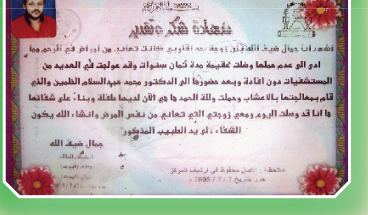 شهادة شكر وتقدير
أشهد أنا جمال ضيف الله بأن زوجة أحد أقاربي كانت تعاني من أمراض في الرحم مما
ادى الى عدم حملها وظلت عقيمة مدة كمان سنوات وقد عولجت في العديد من
المستشفيات دون افادة وبعد حضورها الى الدكتور محمد عبدالسلام الظمين والذي
قام بمعالجتها بالاعشاب وحملت ولله الحمد ها هي الآن لديها طفلة وبناءً على شفائها
ها انا قد وصلت اليوم ومعي زوجتي التي تعاني من نفس المرض وانشاء الله يكون
الشفاء، لى يد الطبيب المذكور
جمال ضيف الله
ملاحظة : الأصل محفوظ في ارشيف المركز
حرر بتاريخ 2005/7/2م